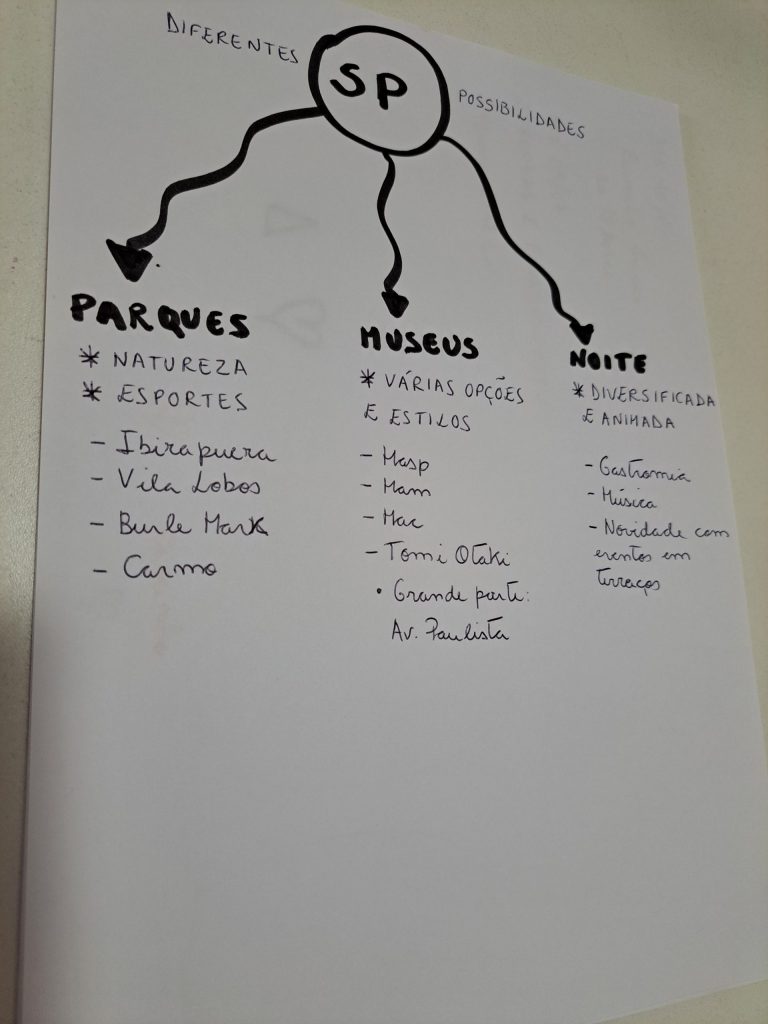 DIFERENTES
SP
POSSIBILIDADES
PARQUES
* NATUREZA
* ESPORTES
- Ibirapuera
- Vila Lobos
- Burle Marx
- Carmo
MUSEUS
* VÁRIAS OPÇÕES
E ESTILOS
- Masp
- Mam
- Mac
- Tomi Otaki
• Grande parte:
Av. Paulista
NOITE
* DIVERSIFICADA
E ANIMADA
- Gastromia
- Música
- Novidade com
eventos em
terraços